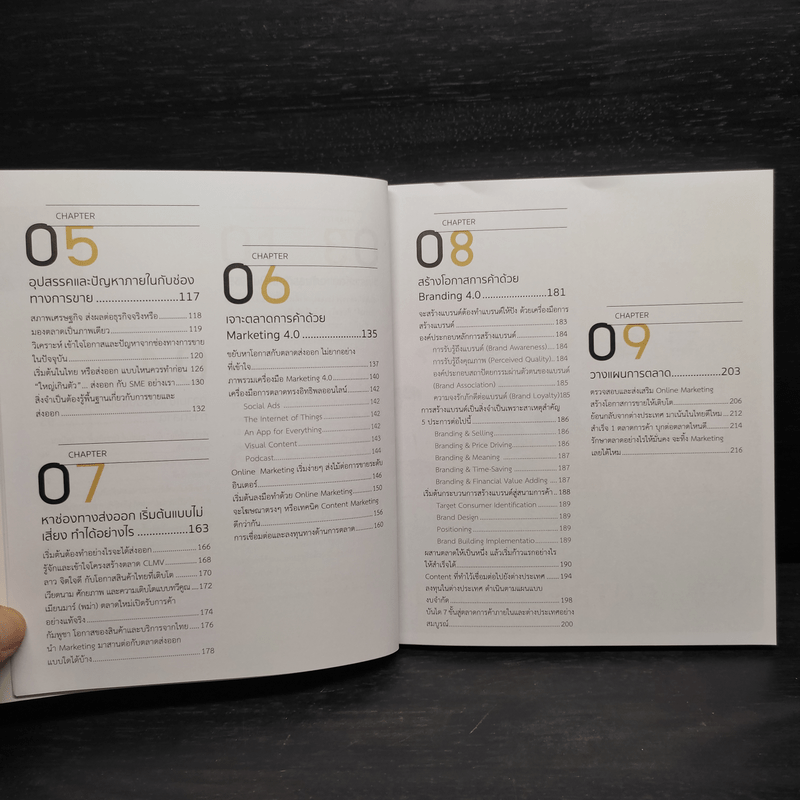 CHAPTER
05
อุปสรรคและปัญหาภายในกับช่อง
ทางการขาย ........................117
สภาพเศรษฐกิจ ส่งผลต่อธุรกิจจริงหรือ ............ 118
มองตลาดเป็นภาพเดียว ............ 119
วิเคราะห์ เข้าใจโอกาสและปัญหาจากช่องทางการขาย
ในปัจจุบัน ............ 120
เริ่มต้นในไทย หรือส่งออก แบบไหนควรทำก่อน 126
"ใหญ่เกินตัว"... ส่งออก กับ SME อย่างเรา ............ 130
สิ่งจำเป็นต้องรู้พื้นฐานเกี่ยวกับการขายและ
ส่งออก ............ 132
CHAPTER
07
หาช่องทางส่งออก เริ่มต้นแบบไม่
เสี่ยง ทำได้อย่างไร ..................163
เริ่มต้นต้องทำอย่างไรจะได้ส่งออก ............ 166
รู้จักและเข้าใจโครงสร้างตลาด CLMV ............ 168
ลาว จิตใจดี กับโอกาสสินค้าไทยที่เติบโต ............ 170
เวียดนาม ศักยภาพ และความเติบโตแบบทวีคูณ ..... 172
เมียนมาร์ (พม่า) ตลาดใหม่เปิดรับการค้า
อย่างแท้จริง ............ 174
กัมพูชา โอกาสของสินค้าและบริการจากไทย ..... 176
นำ Marketing มาสานต่อกับตลาดส่งออก
แบบใดได้บ้าง ............ 178
CHAPTER
06
เจาะตลาดการค้าด้วย
Marketing 4.0 ....................135
ขยับหาโอกาสกับตลาดส่งออก ไม่ยากอย่าง
ที่เข้าใจ ............ 137
ภาพรวมเครื่องมือ Marketing 4.0 ............ 140
เครื่องมือการตลาดทรงอิทธิพลออนไลน์ ............ 142
Social Ads ............ 142
The Internet of Things ............ 142
An App for Everything ............ 142
Visual Content ............ 143
Podcast ............ 144
Online Marketing เริ่มง่ายๆ ส่งไม้ต่อการขายระดับ
อินเตอร์ ............ 146
เริ่มต้นลงมือทำด้วย Online Marketing ............ 150
จะโฆษณาตรงๆ หรือเทคนิค Content Marketing
ดีกว่ากัน ............ 156
การเชื่อมต่อและลงทุนทางด้านการตลาด ............ 160
CHAPTER
08
สร้างโอกาสการค้าด้วย
Branding 4.0 ....................181
จะสร้างแบรนด์ต้องทำแบรนด์ให้ปัง ด้วยเครื่องมือการ
สร้างแบรนด์ ............ 183
องค์ประกอบหลักการสร้างแบรนด์ ............ 184
การรับรู้ถึงแบรนด์ (Brand Awareness) ............ 184
การรับรู้ถึงคุณภาพ (Perceived Quality) ..... 184
องค์ประกอบสถาปัตยกรรมผ่านตัวตนของแบรนด์
(Brand Association) ............ 185
ความจงรักภักดีต่อแบรนด์ (Brand Loyalty)185
การสร้างแบรนด์เป็นสิ่งจำเป็นเพราะสาเหตุสำคัญ
5 ประการต่อไปนี้ ............ 186
Branding & Selling ............ 186
Branding & Price Driving ............ 186
Branding & Meaning ............ 187
Branding & Time-Saving ............ 187
Branding & Financial Value Adding ..... 187
เริ่มต้นกระบวนการสร้างแบรนด์สู่สนามการค้า .. 188
Target Consumer Identification ............ 189
Brand Design ............ 189
Positioning ............ 189
Brand Building Implementatio ............ 189
ผสานตลาดให้เป็นหนึ่ง แล้วเริ่มก้าวแรกอย่างไร
ให้สำเร็จได้ ............ 190
Content ที่ทำไว้เชื่อมต่อไปยังต่างประเทศ ............ 194
ลงทุนในต่างประเทศ ดำเนินตามแผนแบบ
งบจำกัด ............ 198
บันได 7 ขั้นสู่ตลาดการค้าภายในและต่างประเทศอย่าง
สมบูรณ์ ............ 200
CHAPTER
09
วางแผนการตลาด..................203
ตรวจสอบและส่งเสริม Online Marketing
สร้างโอกาสการขายให้เติบโต ............ 206
ย้อนกลับจากต่างประเทศ มาเน้นในไทยดีไหม ..... 212
สำเร็จ 1 ตลาดการค้า บุกต่อตลาดไหนดี ............ 214
รักษาตลาดอย่างไรให้มั่นคง จะทิ้ง Marketing
เลยได้ไหม ............ 216